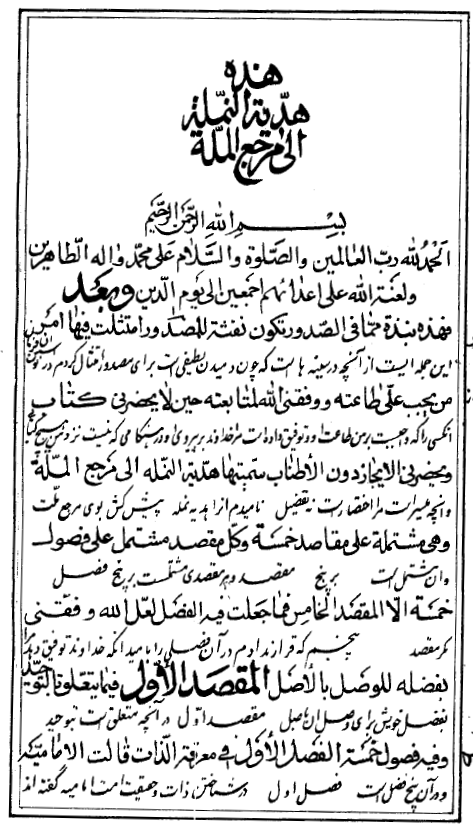 هذه
هدية النملة
الى مرجع الملة
بسم الله الرحمن الرحیم
الحمد لله رب العالمین والصلوة والسلام علی محمد واله الطاهرین
ولعنة الله علی اعدائهم اجمعین الی یوم الدین وبعد
فهذه نبذة مما فی الصدور تکون نفثة للمصدور امتثلت فیها امر
این جمله ایست از آنچه در سینه ها است که چون دمیدن لطیفی است برای مصدور امتثال کردم در نوشتن ان فرمان
من یجب علی طاعته ووفقنی الله لمتابعته حین لا یحضرنی کتاب
انکسی را که واجبست بر من طاعت او و توفیق داده است مرا خداوند بر پیروی او در هنگامی که نیست نزد من هیچ کتاب
ویحضرنی الایجاز دون الاطناب سمیتها هدیة النملة الی مرجع الملة
و انچه میسر است مرا اختصار است نه تفضیل نامیدم انرا هدیه نمله پیش کش بوی مرجع ملت
وهی مشتملة علی مقاصد خمسة وکل مقصد مشتمل علی فصول
وان مشتمل است بر پنج مقصد و هر مقصدی مشتملست بر پنج فصل
خمسة الا المقصد الخامس فما جعلت فیه الفصل لعل الله وفقنی
مگر مقصد پنجم که قرار ندادم در آن فصلی را بامید انکه خداوند توفیق دهد مرا
بفضله للوصل بالاصل المقصد الاول فیما یتعلق بالتوحید
بفضل خویش برای وصل ان باصل مقصد اول در آنچه متعلق است بتوحید
وفیه فصول خمسة الفصل الاول فی معرفة الذات قالت الامامیة
و در آن پنج فصل است فصل اول در شناختن ذات و حقیقت است امامیه گفته اند